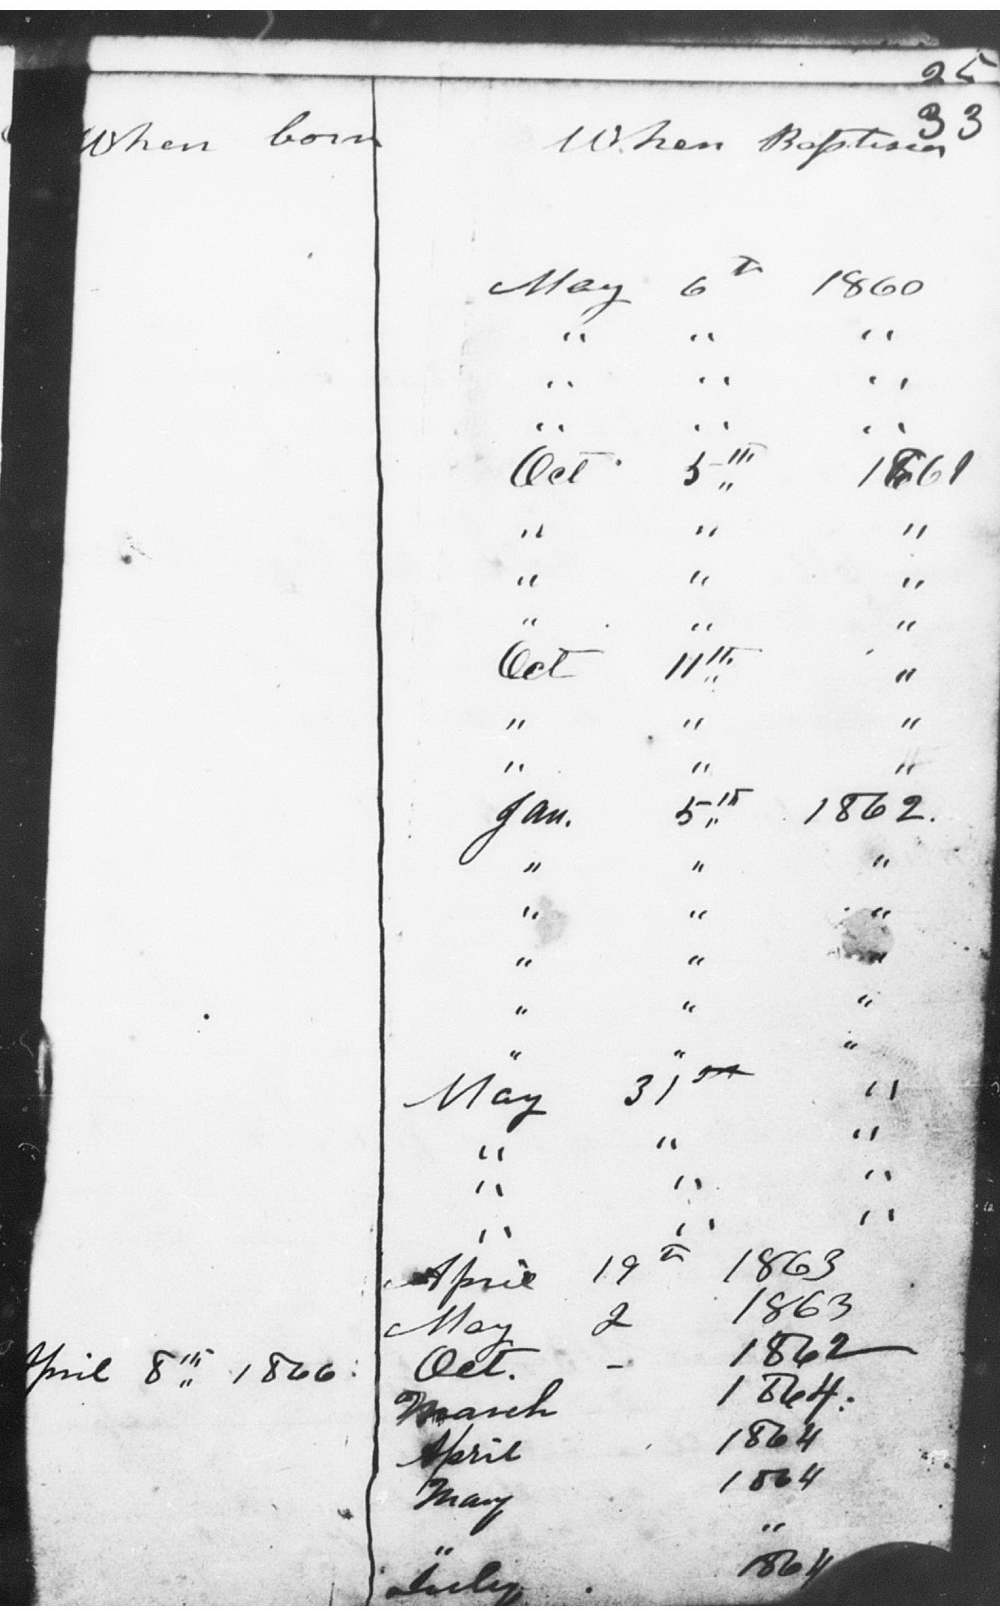 25
33
When born When Baptised
May 6th 1860
" " "
" " "
" " "
Oct 5th 1861
" " "
" " "
" " "
Oct 11th "
" " "
" " "
Jan. 5th 1862.
" " "
" " "
" " "
" " "
" " "
May 31st "
" " "
" " "
" " "
April 19th 1863
May 2 1863
April 8th 1866: Oct. - 1862
March 1864:
April 1864
May 1864
" "
July. 1864